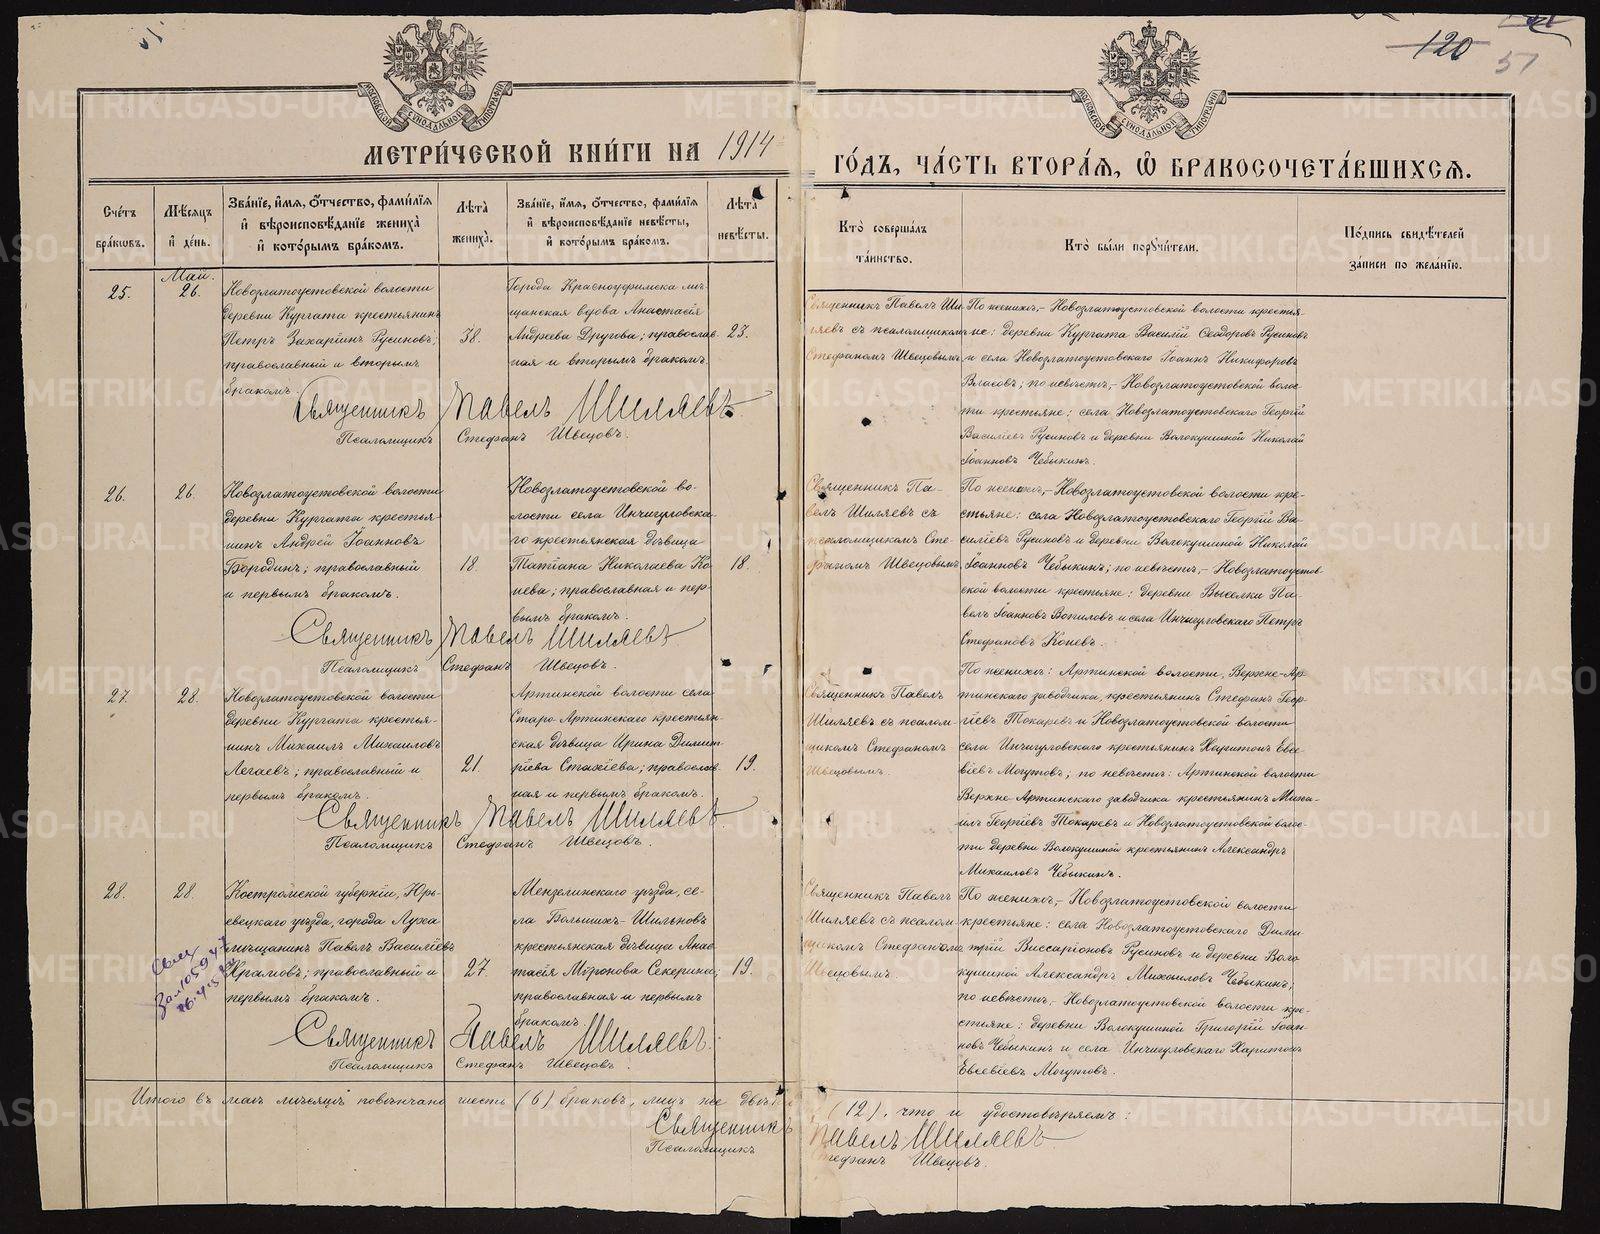 120
51
МОСКОВСКОЙ СѴНОДАЛЬНОЙ ТИПОГРАФІИ
МОСКОВСКОЙ СѴНОДАЛЬНОЙ ТИПОГРАФІИ
МЕТРИ́ЧЕСКОЙ КНИ́ГИ НА 1914 ГО́ДЪ, ЧА́СТЬ ВТОРА́Я, Ѽ БРАКОСОЧЕТА́ВШИХСЯ.
Сче́тъ бра́кѡвъ.
Мѣ́сяцъ и҆ де́нь.
Зва́нїе, и҆́мя, ѻ҆́тчество, фами́лїя и҆ вѣроисповѣ́данїе жениха̀ и҆ кото́рымъ бра́комъ.
Лѣ́та жениха̀.
Зва́нїе, и҆́мя, ѻ҆́тчество, фами́лїя и҆ вѣроисповѣ́данїе невѣ́сты, и҆ кото́рымъ бра́комъ.
Лѣ́та невѣ́сты.
Кто̀ соверша́лъ та́инство.
Кто̀ бы́ли поручи́тели.
По́дпись свидѣ́телей за́писи по жела́нїю.
Май.
25.
26.
Новозлатоустовской волости
деревни Кургата крестьянинъ
Петръ Захаріинъ Русиновъ;
православный и вторымъ
бракомъ.
38.
Города Красноуфимска мѣ-
щанская вдова Анастасія
Андреева Другова; православ-
ная и вторымъ бракомъ.
23.
Священникъ Павелъ Ши-
ляевъ съ псаломщикомъ
Стефаномъ Швецовымъ.
По женихѣ,- Новозлатоустовской волости крестья-
не: деревни Кургата Василій Ѳеодоровъ Русиновъ
и села Новозлатоустовскаго Іоаннъ Никифоровъ
Власовъ; по невѣстѣ,- Новозлатоустовской волос-
ти крестьяне: села Новозлатоустовскаго Георгій
Василіевъ Русиновъ и деревни Волокушиной Николай
Іоанновъ Чебыкинъ.
Священникъ Павелъ Шиляевъ
Псаломщикъ Стефанъ Швецовъ.
26.
26.
Новозлатоустовской волости
деревни Кургата крестья-
нинъ Андрей Іоанновъ
Бородинъ; православный
и первымъ бракомъ.
18.
Новозлатоустовской во-
лости села Инчигуловска-
го крестьянская дѣвица
Татіана Николаева Ко-
нева; православная и пер-
вымъ бракомъ.
18.
Священникъ Па-
велъ Шиляевъ съ
псаломщикомъ Сте-
фаномъ Швецовымъ.
По женихѣ,- Новозлатоустовской волости кре-
стьяне: села Новозлатоустовскаго Георгій Ва-
силіевъ Русиновъ и деревни Волокушиной Николай
Іоанновъ Чебыкинъ; по невѣстѣ,- Новозлатоустов-
ской волости крестьяне: деревни Выселки Па-
велъ Іоанновъ Вопиловъ и села Инчигуловскаго Петръ
Стефановъ Коневъ.
Священникъ Павелъ Шиляевъ
Псаломщикъ Стефанъ Швецовъ.
27.
28.
Новозлатоустовской волости
деревни Кургата крестья-
нинъ Михаилъ Михаиловъ
Легаевъ; православный и
первымъ бракомъ.
21.
Артинской волости села
Старо-Артинскаго крестьян-
ская дѣвица Ирина Димит-
ріева Стахіева; православ-
ная и первымъ бракомъ.
19.
Священникъ Павелъ
Шиляевъ съ псалом-
щикомъ Стефаномъ
Швецовымъ.
По женихѣ: Артинской волости, Верхне-Ар-
тинскаго заводчика, крестьянинъ Стефанъ Геор-
гіевъ Токаревъ и Новозлатоустовской волости
села Инчигуловскаго крестьянинъ Харитонъ Евсе-
віевъ Могутовъ; по невѣстѣ: Артинской волости
Верхне-Артинскаго заводчика крестьянинъ Миха-
илъ Георгіевъ Токаревъ и Новозлатоустовской волос-
ти деревни Волокушиной крестьянинъ Александръ
Михаиловъ Чебыкинъ.
Священникъ Павелъ Шиляевъ.
Псаломщикъ Стефанъ Швецовъ.
28.
28.
Костромской губерніи, Юрь-
евецкаго уѣзда, города Луха
мѣщанинъ Павелъ Василіевъ
Храмовъ; православный и
первымъ бракомъ.
27.
Мензелинскаго уѣзда, се-
ла Большихъ-Шильновъ
крестьянская дѣвица Анас-
тасія Миронова Секерина;
православная и первымъ
бракомъ.
19.
Священникъ Павелъ
Шиляевъ съ псалом-
щикомъ Стефаномъ
Швецовымъ.
По женихѣ,- Новозлатоустовской волости
крестьяне: села Новозлатоустовскаго Дими-
трій Виссаріоновъ Русиновъ и деревни Воло-
кушиной Александръ Михаиловъ Чебыкинъ;
по невѣстѣ,- Новозлатоустовской волости кре-
стьяне: деревни Волокушиной Григорій Іоан-
новъ Чебыкинъ и села Инчигуловскаго Харитонъ
Евсевіевъ Могутовъ.
Священникъ Павелъ Шиляевъ.
Псаломщикъ Стефанъ Швецовъ.
Итого въ маѣ мѣсяцѣ повѣнчано шесть (6) браковъ, лицъ же двѣн (12), что и удостовѣряемъ:
Священникъ Павелъ Шиляевъ
Псаломщикъ Стефанъ Швецовъ.
METRIKI.GASO-URAL.RU